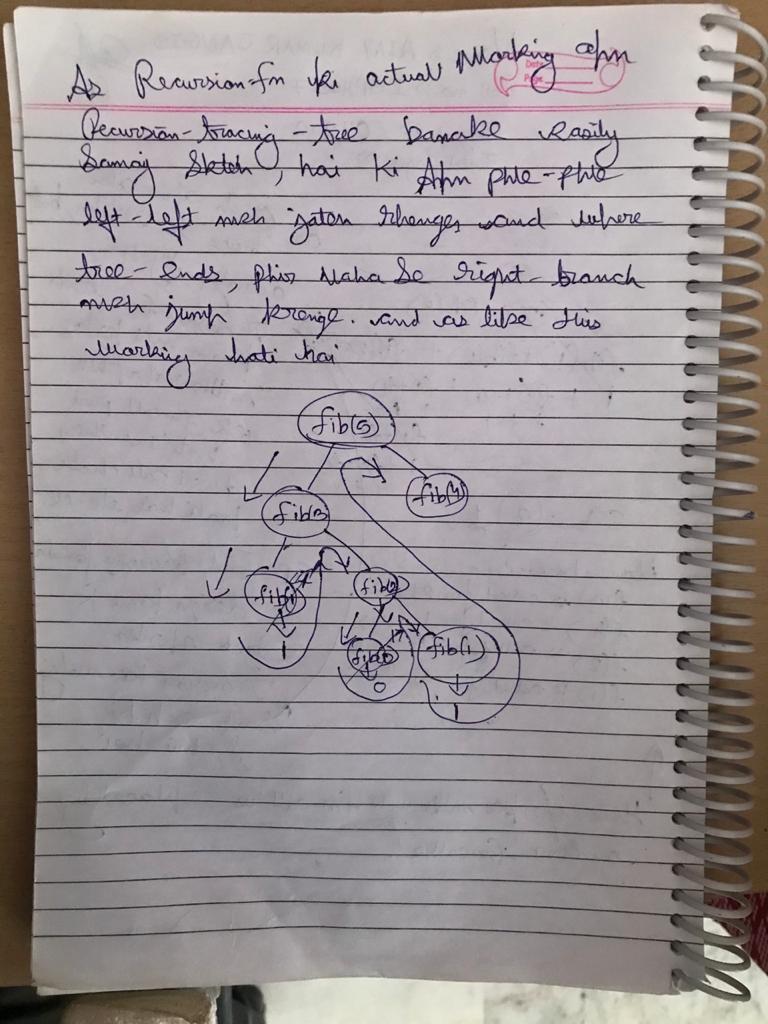 As Recursion-fn ki actual Working apn
Date
Page
Recursion-tracing-tree banake easily
Samaj Skteh, hai ki Apn phle-phle
left-left meh jaten rhenge, and where
tree-ends, phir waha se right-branch
meh jump krenge. and as like this
Working hoti hai
fib(5)
fib(4)
fib(1)
fib(1)
1
0
1